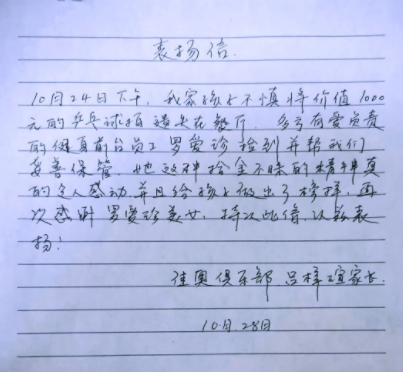 表扬信.
10月24日下午,我家孩子不慎将价值1000
元的乒乓球拍遗失在餐厅,多亏有爱负责
的 前台员工罗爱珍 捡到并帮我们
妥善保管,她这种拾金不昧的精神真
的令人感动并且给孩子做出了榜样,再
次感谢罗爱珍美女,特以此信,以兹表
扬!
佳奥俱乐部 吕梓瑄家长.
10月28日